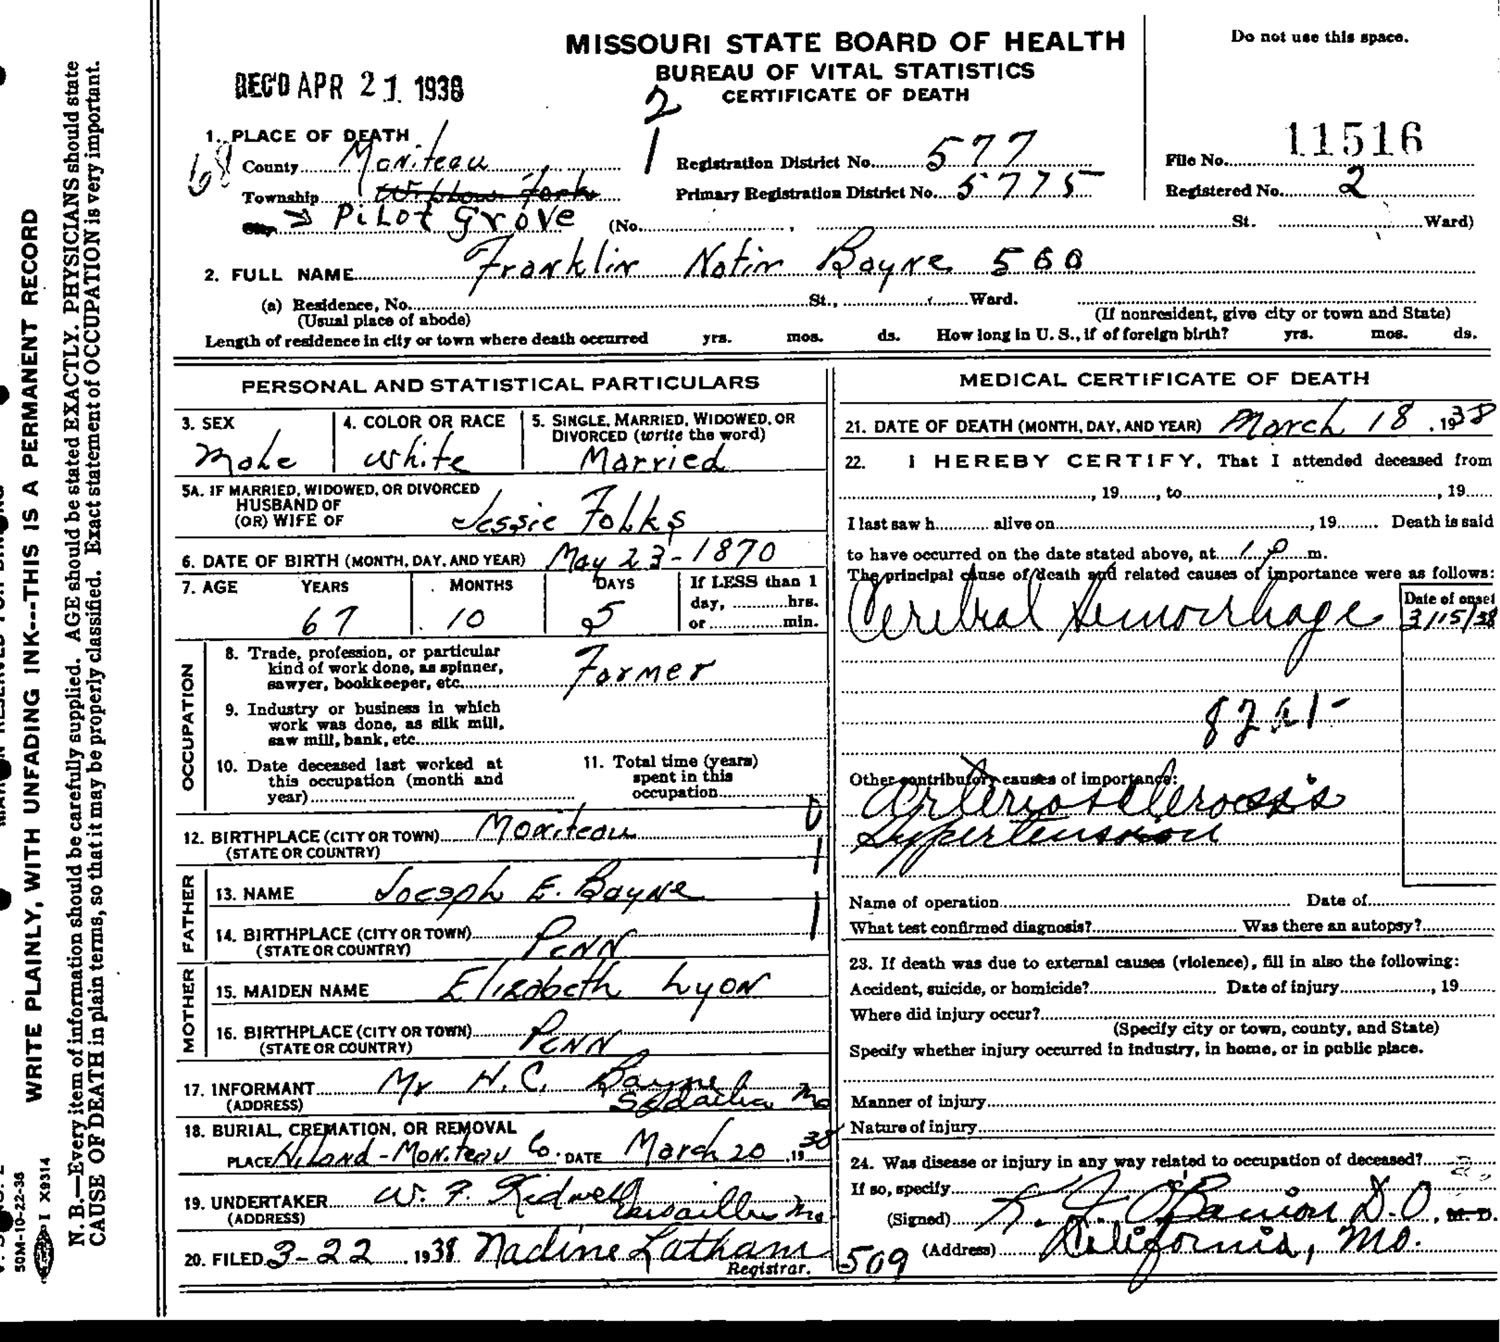 MISSOURI STATE BOARD OF HEALTH
BUREAU OF VITAL STATISTICS
CERTIFICATE OF DEATH
Do not use this space.
REC'D APR 21 1938
2
1
1. PLACE OF DEATH
68
County Moniteau
Registration District No. 577
File No. 11516
Township
Primary Registration District No. 5775
Registered No. 2
City Pilot Grove
(No. , St. Ward)
2. FULL NAME Franklin Notin Bayne 560
(a) Residence, No. St., Ward.
(Usual place of abode)
(If nonresident, give city or town and State)
Length of residence in city or town where death occurred yrs. mos. ds. How long in U. S., if of foreign birth? yrs. mos. ds.
PERSONAL AND STATISTICAL PARTICULARS
3. SEX
Male
4. COLOR OR RACE
White
5. SINGLE, MARRIED, WIDOWED, OR
DIVORCED (write the word)
Married
5A. IF MARRIED, WIDOWED, OR DIVORCED
HUSBAND OF
(OR) WIFE OF Jessie Folks
6. DATE OF BIRTH (MONTH, DAY, AND YEAR) May 23-1870
7. AGE YEARS MONTHS DAYS If LESS than 1
day, hrs.
or min.
67 10 5
OCCUPATION
8. Trade, profession, or particular
kind of work done, as spinner,
sawyer, bookkeeper, etc. Farmer
9. Industry or business in which
work was done, as silk mill,
saw mill, bank, etc.
10. Date deceased last worked at
this occupation (month and
year)
11. Total time (years)
spent in this
occupation
0
12. BIRTHPLACE (CITY OR TOWN) Moniteau
(STATE OR COUNTRY)
1
FATHER
13. NAME Joseph E. Bayne
1
14. BIRTHPLACE (CITY OR TOWN)
(STATE OR COUNTRY) Penn
MOTHER
15. MAIDEN NAME Elizabeth Lyon
16. BIRTHPLACE (CITY OR TOWN)
(STATE OR COUNTRY) Penn
17. INFORMANT Mr H.C. Bayne
(ADDRESS) Sedalia Mo
18. BURIAL, CREMATION, OR REMOVAL
PLACE Hiland-Moniteau Co. DATE March 20, 1938
19. UNDERTAKER W. F. Kidwell
(ADDRESS) Versailles Mo
20. FILED 3-22, 1938 Nadine Latham
Registrar.
MEDICAL CERTIFICATE OF DEATH
21. DATE OF DEATH (MONTH, DAY, AND YEAR) March 18, 1938
22. I HEREBY CERTIFY, That I attended deceased from
, 19 , to , 19
I last saw h alive on , 19 Death is said
to have occurred on the date stated above, at 1 P m.
The principal cause of death and related causes of importance were as follows:
Date of onset
Cerebral Hemorrhage 3/15/38
Other contributory causes of importance:
Arteriosclerosis
Hypertension
Name of operation Date of
What test confirmed diagnosis? Was there an autopsy?
23. If death was due to external causes (violence), fill in also the following:
Accident, suicide, or homicide? Date of injury , 19
Where did injury occur?
(Specify city or town, county, and State)
Specify whether injury occurred in industry, in home, or in public place.
Manner of injury
Nature of injury
24. Was disease or injury in any way related to occupation of deceased?
If so, specify
(Signed) O'Banion D.O., M. D.
509 (Address) California, Mo.
WRITE PLAINLY, WITH UNFADING INK---THIS IS A PERMANENT RECORD
N. B.—Every item of information should be carefully supplied. AGE should be stated EXACTLY. PHYSICIANS should state
CAUSE OF DEATH in plain terms, so that it may be properly classified. Exact statement of OCCUPATION is very important.
50M-10-22-36
I X9314